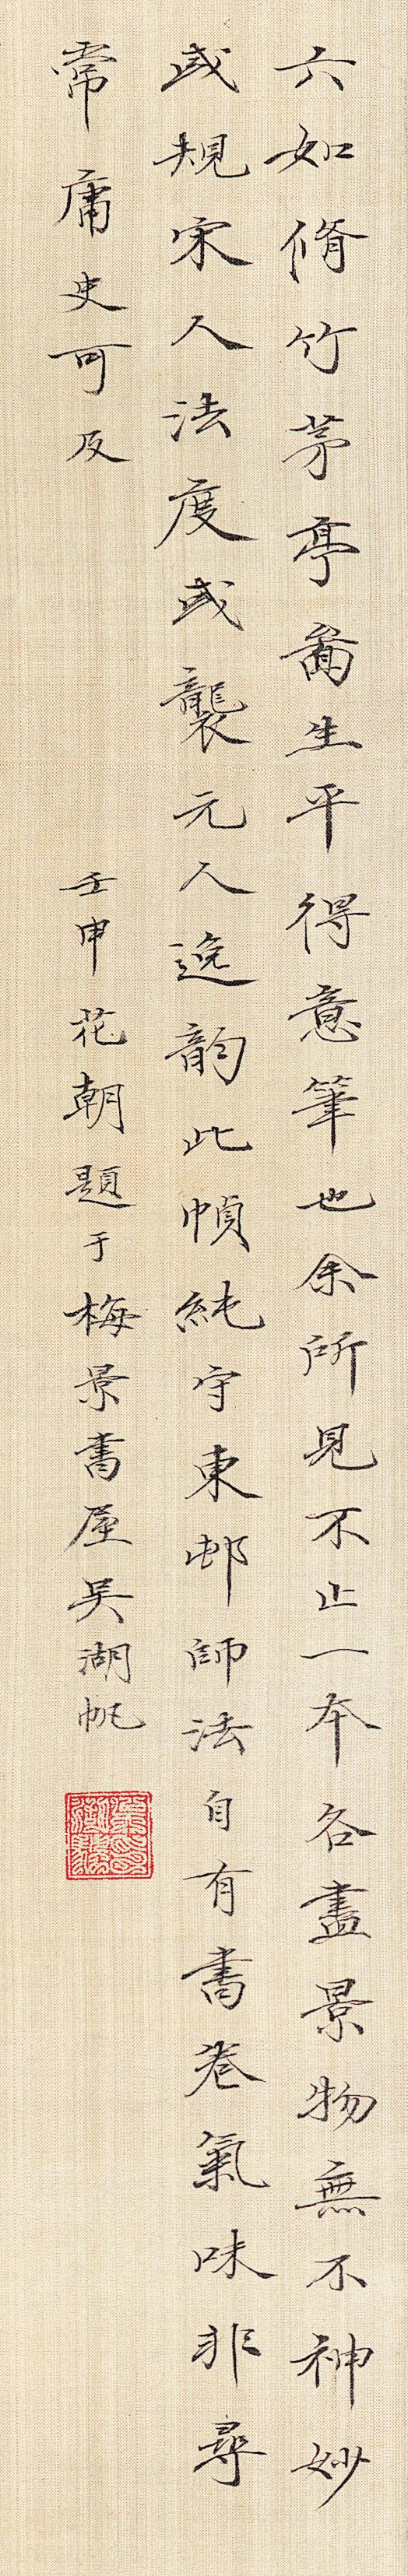 六如脩竹茅亭啚生平得意筆也余所見不止一本各盡景物無不神妙
或規宋人法度或襲元人逸韵此幀純守東邨師法自有書卷氣味非尋
常庸史可及
壬申花朝題于梅景書屋吴湖帆